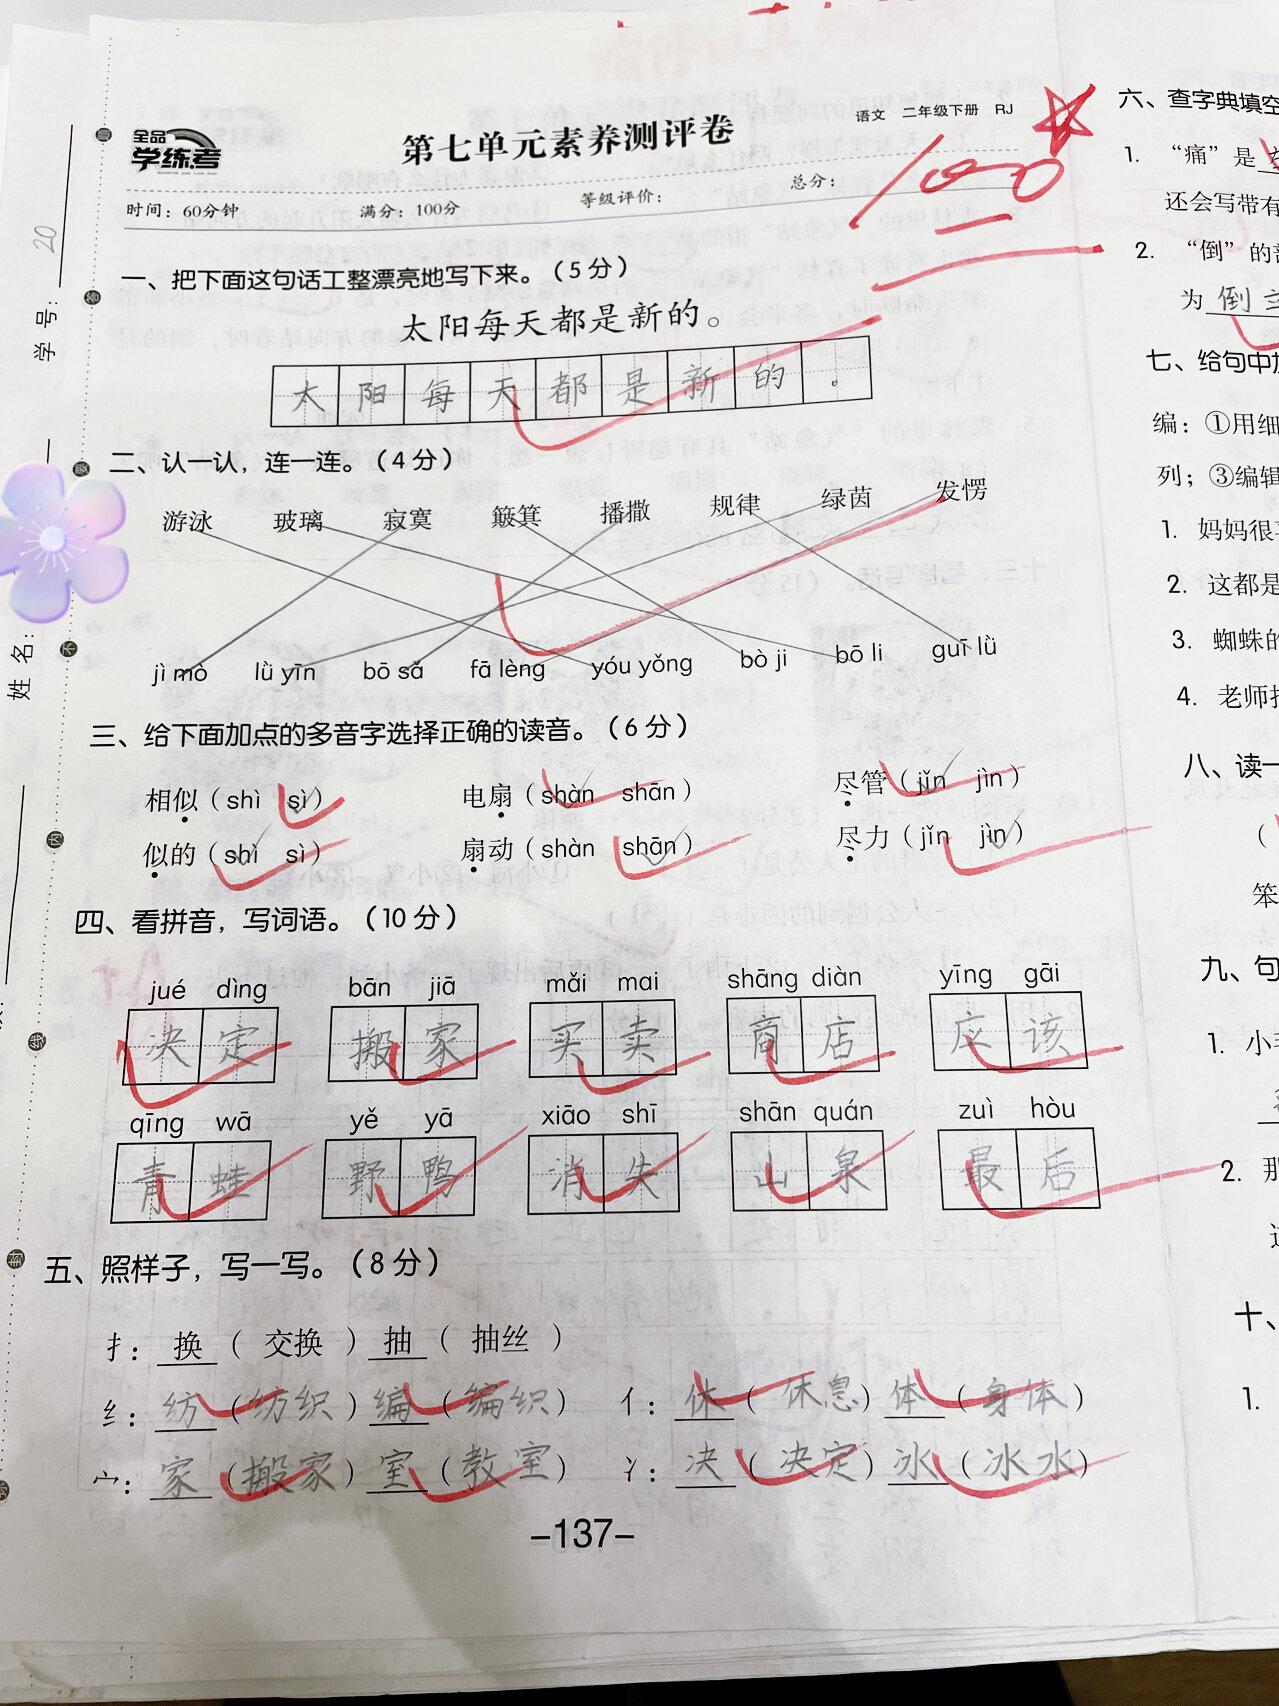 全品
学练考
第七单元素养测评卷
语文 二年级下册 RJ
时间：60分钟 满分：100分 等级评价： 总分：100
学号： 20
姓名：
一、把下面这句话工整漂亮地写下来。（5分）
太阳每天都是新的。
太阳每天都是新的。
二、认一认，连一连。（4分）
游泳 玻璃 寂寞 簸箕 播撒 规律 绿茵 发愣
jì mò lǜ yīn bō sǎ fā lèng yóu yǒng bò ji bō li guī lǜ
三、给下面加点的多音字选择正确的读音。（6分）
相似（shì sì） 电扇（shàn shān） 尽管（jǐn jìn）
似的（shì sì） 扇动（shàn shān） 尽力（jǐn jìn）
四、看拼音，写词语。（10分）
jué dìng bān jiā mǎi mai shāng diàn yīng gāi
决定 搬家 买卖 商店 应该
qīng wā yě yā xiāo shī shān quán zuì hòu
青蛙 野鸭 消失 山泉 最后
五、照样子，写一写。（8分）
扌：换（交换）抽（抽丝）
纟：纺（纺织）编（编织） 亻：休（休息）体（身体）
宀：家（搬家）室（教室） 冫：决（决定）冰（冰水）
-137-
六、查字典填空
1. “痛”是
还会写带有
2. “倒”的
为 倒
七、给句中加
编：①用细
列；③编辑
1. 妈妈很
2. 这都是
3. 蜘蛛的
4. 老师
八、读一
（
笨
九、句
1. 小
2. 那
十、
1.